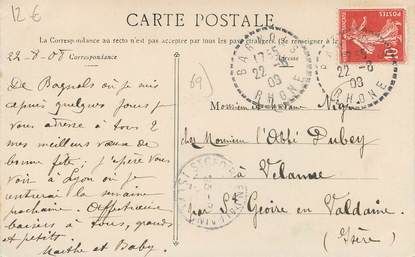 12 €
CARTE POSTALE
La Correspondance au recto n'est pas acceptée par tous les pays étrangers. (Se renseigner à
22-8-08 Correspondance
De Bagnols où je suis
depuis quelques jours je
vous adresse à tous 2
mes meilleurs vœux de
bonne fête; j'espère vous
voir à Lyon où je
rentrerai la semaine
prochaine. Affectueux
baisers à tous, grands
et petits.
et Baby.
22 -8
08
RHONE
22 -8
08
RHONE
10
69)
Monsieur
chez Monsieur l'Abbé Dubey
à Velanne
par St Geoire en Valdaine
(Isère)